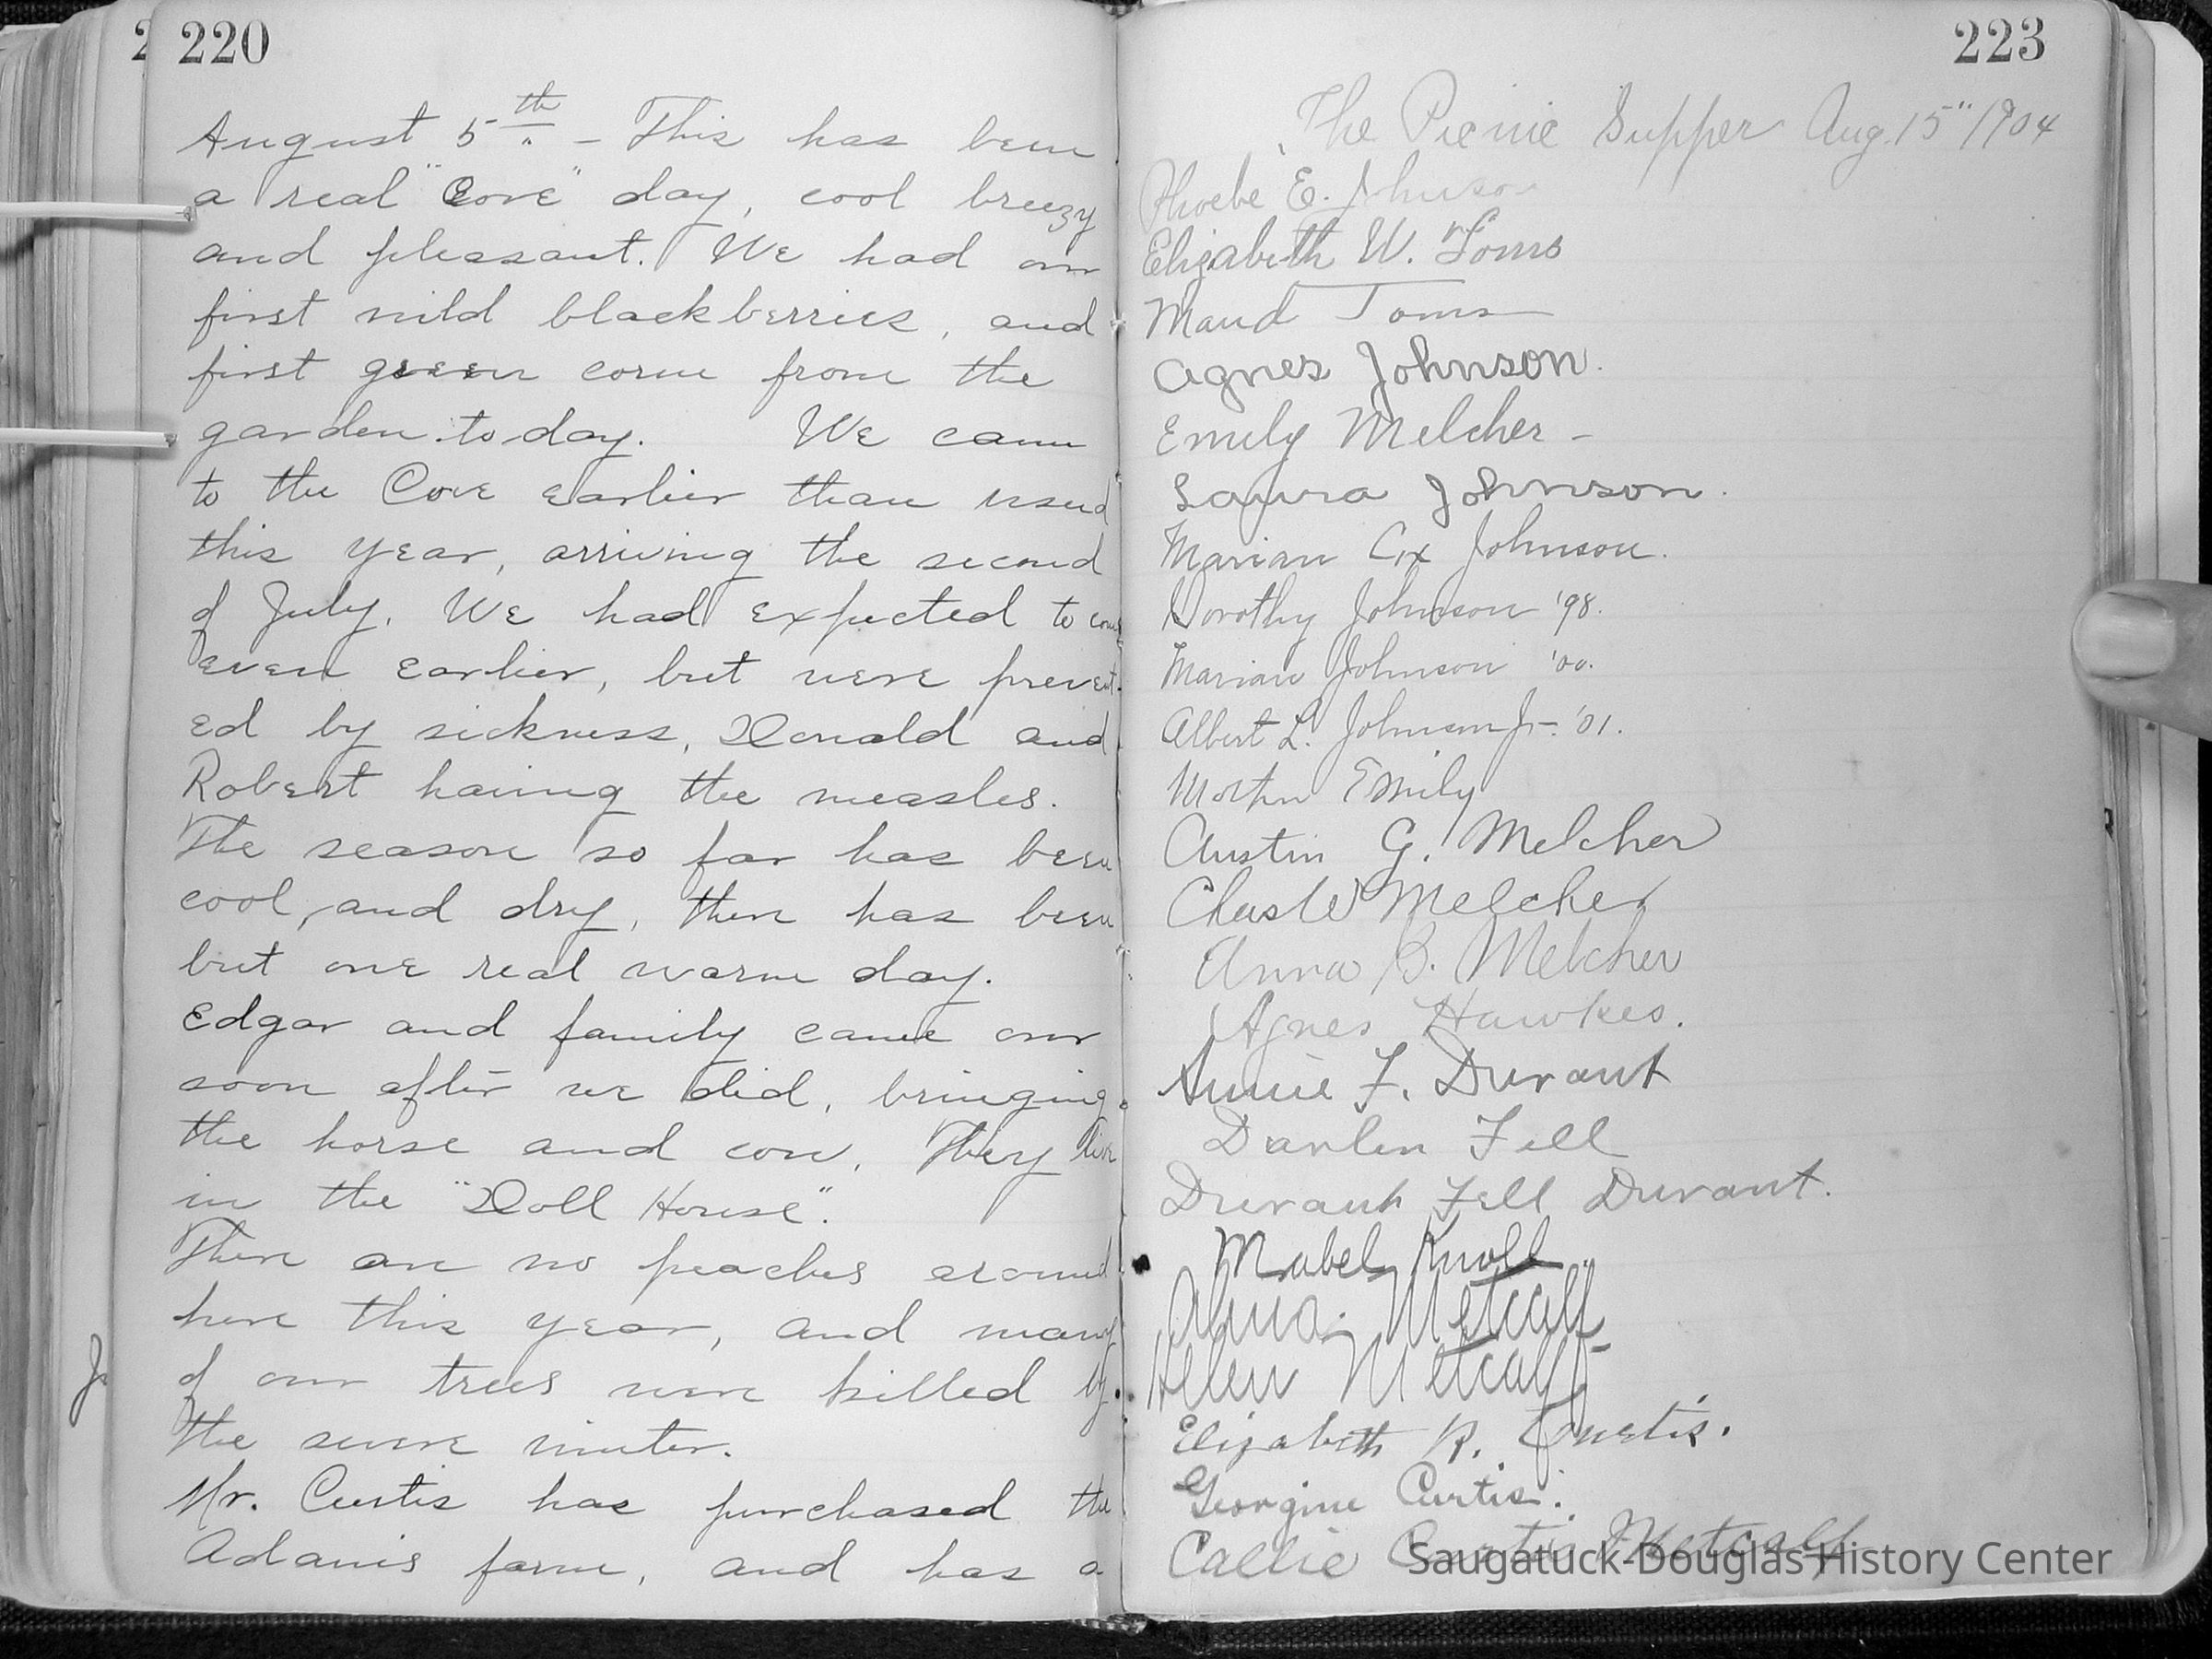 220
August 5th. - This has been
a real "Cove" day, cool breezy
and pleasant. We had our
first wild blackberries, and
first green corn from the
garden to-day. We came
to the Cove earlier than usual
this year, arriving the second
of July. We had expected to come
even earlier, but were prevent-
ed by sickness, Donald and
Robert having the measles.
The season so far has been
cool, and dry, there has been
but one real warm day.
Edgar and family came over
soon after we did, bringing
the horse and cow. They live
in the "Doll House".
There are no peaches around
here this year, and many
of our trees were killed by
the severe winter.
Mr. Curtis has purchased the
Adams farm, and has a
223
The Picnic Supper Aug. 15" 1904
Phoebe E. Johnson
Elizabeth W. Toms
Maud Toms
Agnes Johnson.
Emily Melcher -
Laura Johnson.
Marian Cox Johnson.
Dorothy Johnson '98.
Marian Johnson '00.
Albert L. Johnson Jr. '01.
Emily
Austin G. Melcher
Melcher
Anna B. Melcher
Agnes Hawkes.
Annie F. Durant
Fell
Durant Fell Durant.
Mabel Knoll
Alma Metcalf
Helen Metcalf
Elizabeth R. Curtis.
Georgine Curtis.
Callie Curtis Metcalf
Saugatuck-Douglas History Center